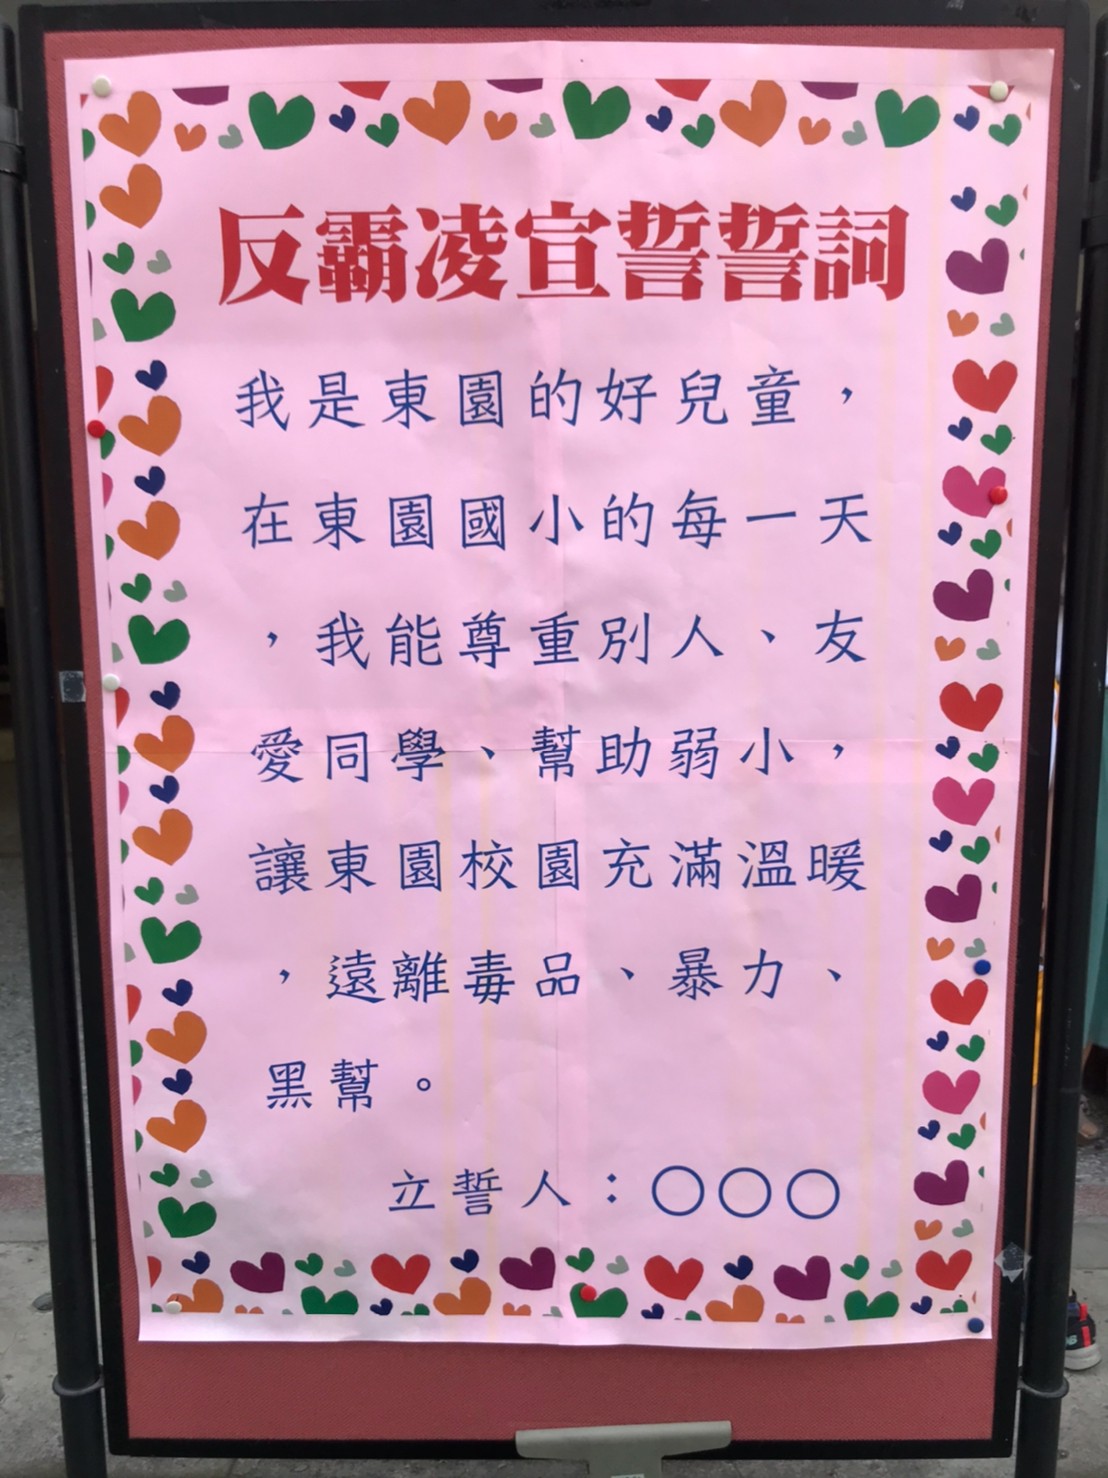 反霸凌宣誓誓詞
我是東園的好兒童，
在東園國小的每一天
，我能尊重別人、友
愛同學、幫助弱小，
讓東園校園充滿溫暖
，遠離毒品、暴力、
黑幫。
立誓人：○○○